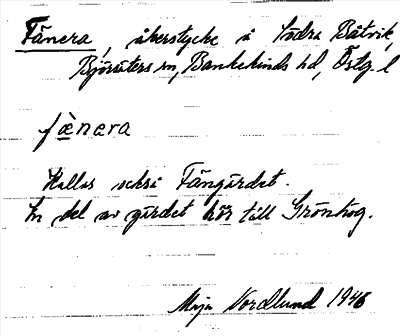 Fånera, åkerstycke å Södra Båtvik,
Björsäters sn, Bankekinds hd, Östg. l
fæ̀nera
Kallas också Fångärdet.
En del av gärdet hör till Grönhog.
Maja Nordlund 1946